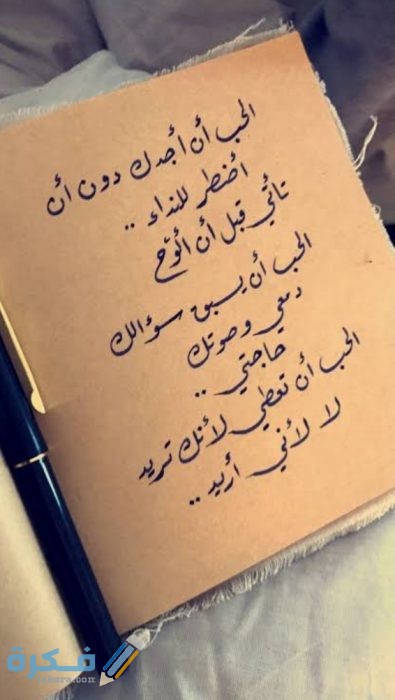 الحب أن أجدك دون أن
أضطر للنداء ..
تأتي قبل أن ألوّح
الحب أن يسبق سؤالك
دمعي وصوتك
حاجتي ..
الحب أن تعطي لأنك تريد
لا لأني أريد ..
فكرة